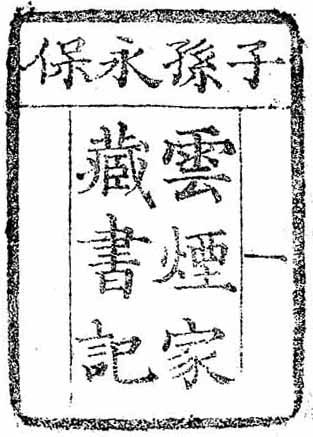 子孫永保
雲煙家
藏書記
一